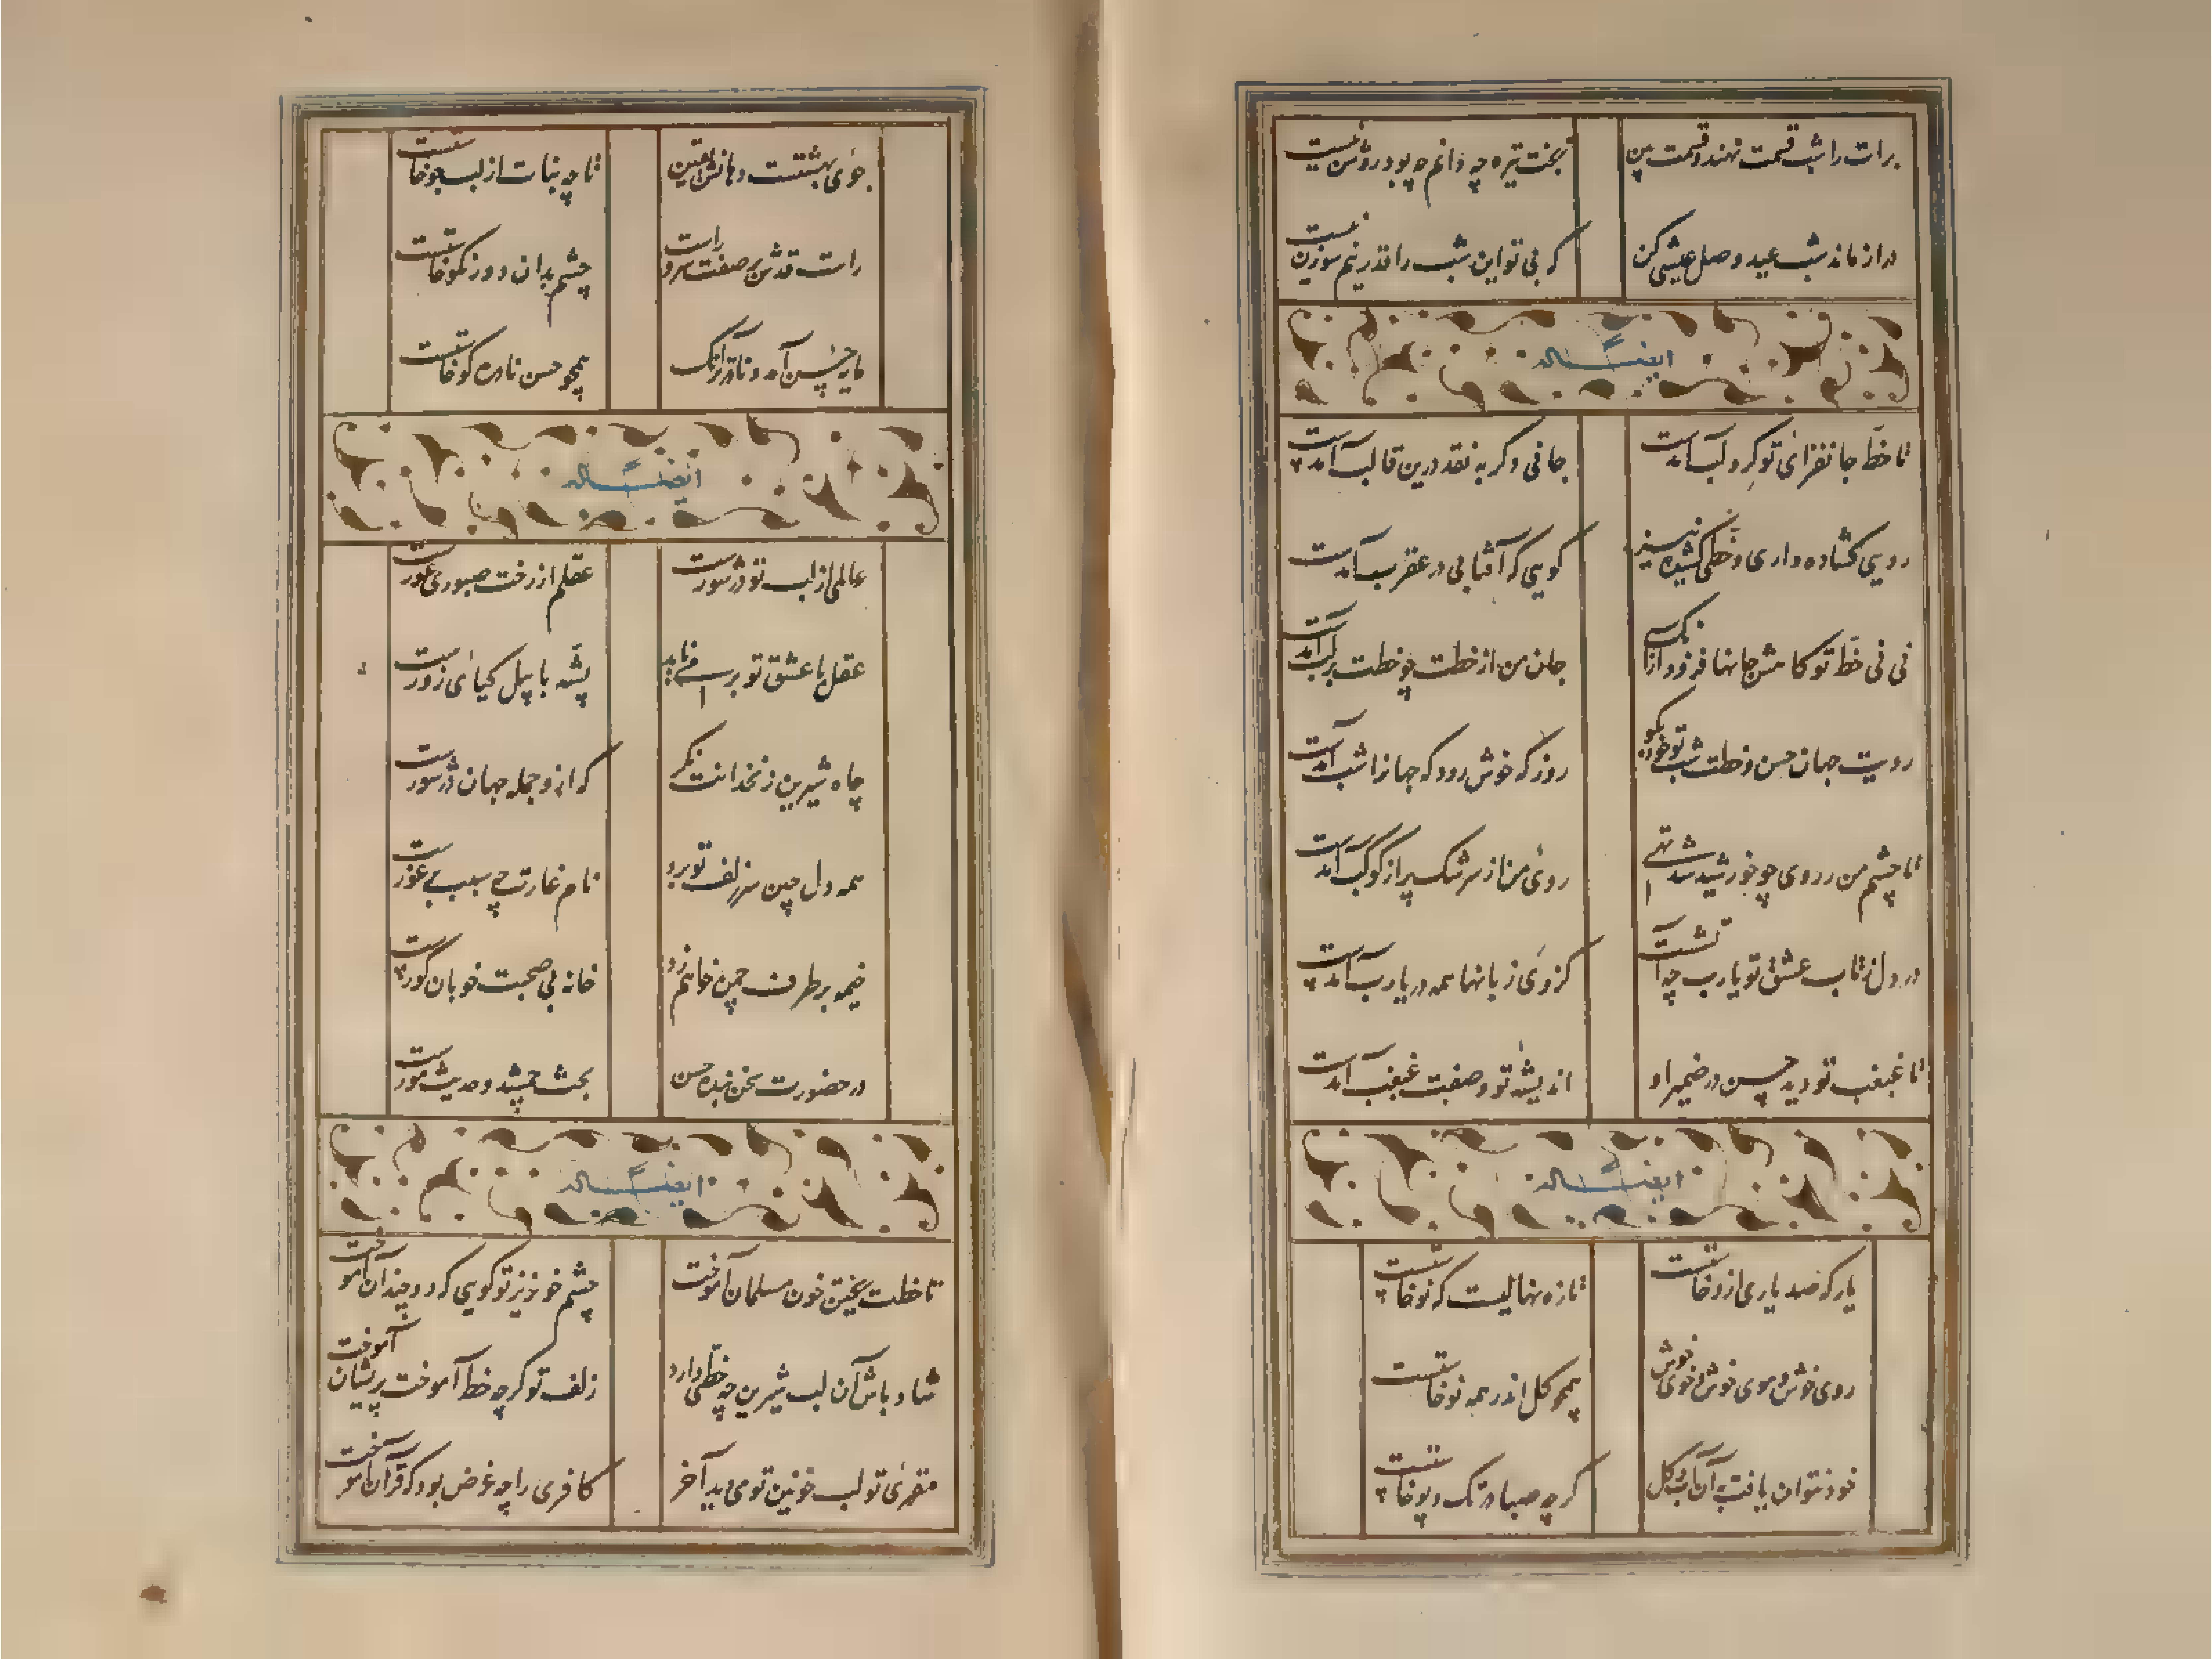 برات را شب قسمت نهند و قسمت بین بخت تیره چه دانم چه بود روشن نیست
دراز ماند شب عید وصل عیشی کن که بی تو این شب را قدر نیم سوزن نیست
ایضاً له
تا خط جانفزای تو گرد لب آمدست جانی دگر به نقد درین قالب آمدست
رویی گشاده داری و خطی کشیده نیز گویی که آفتابی در عقرب آمدست
نی نی خط تو کامش جانها فزود از آنک جان من از خطت چو خطت بر لب آمدست
رویت جهان حسن و خطت شب تو خود بگو روز که خوش رود که جهانرا شب آمدست
تا چشم من ز روی چو خورشید شد تهی روی من از سرشک پر از کوکب آمدست
در دل ز تاب عشق تو یارب چه آتشست کز وی زبانها همه در یارب آمدست
تا غبغب تو دید حسن در ضمیر او اندیشه تو و صفت غبغب آمدست
ایضاً له
یار که صد یاری ازو خاستست تازه نهالیست که نو خاستست
روی خوش و موی خوش و خوی خوش همچو گل اندر همه نو خاستست
خود نتوان یافت به آن آب گل گرچه صبا در تک و پو خاستست
جوی بهشتست دهانش یقین تا چه نبات از لب جو خاستست
راست قدش بر صفت سرو راست چشم بدان دور نکو خاستست
مایه حسن آمد و نادر آنک همچو حسن نادره گو خاستست
ایضاً له
عالمی از لب تو در شورست عقلم از رخت صبوری عورست
عقل با عشق تو بر می‌ناید پشه با پیل کیای زورست
چاه شیرین زنخدانت نمکی که ازو جمله جهان در شورست
همه دل چین سر زلف تو برد نام غارت چی سبب بی غورست
خیمه بر طرف چمن خواهم زد خانه بی صحبت خوبان گورست
در حضورت سخن بنده حسن بحث جمشید و حدیث مورست
ایضاً له
تا خطت ریختن خون مسلمان آموخت چشم خونریز تو گویی که دو چندان آموخت
شاد باش آن لب شیرین چه خطی دارد زلف تو گرچه خط آموخت پریشان آموخت
مقری تو لب خونین تو می دید آخر کافری را چه غرض بود که قرآن آموخت